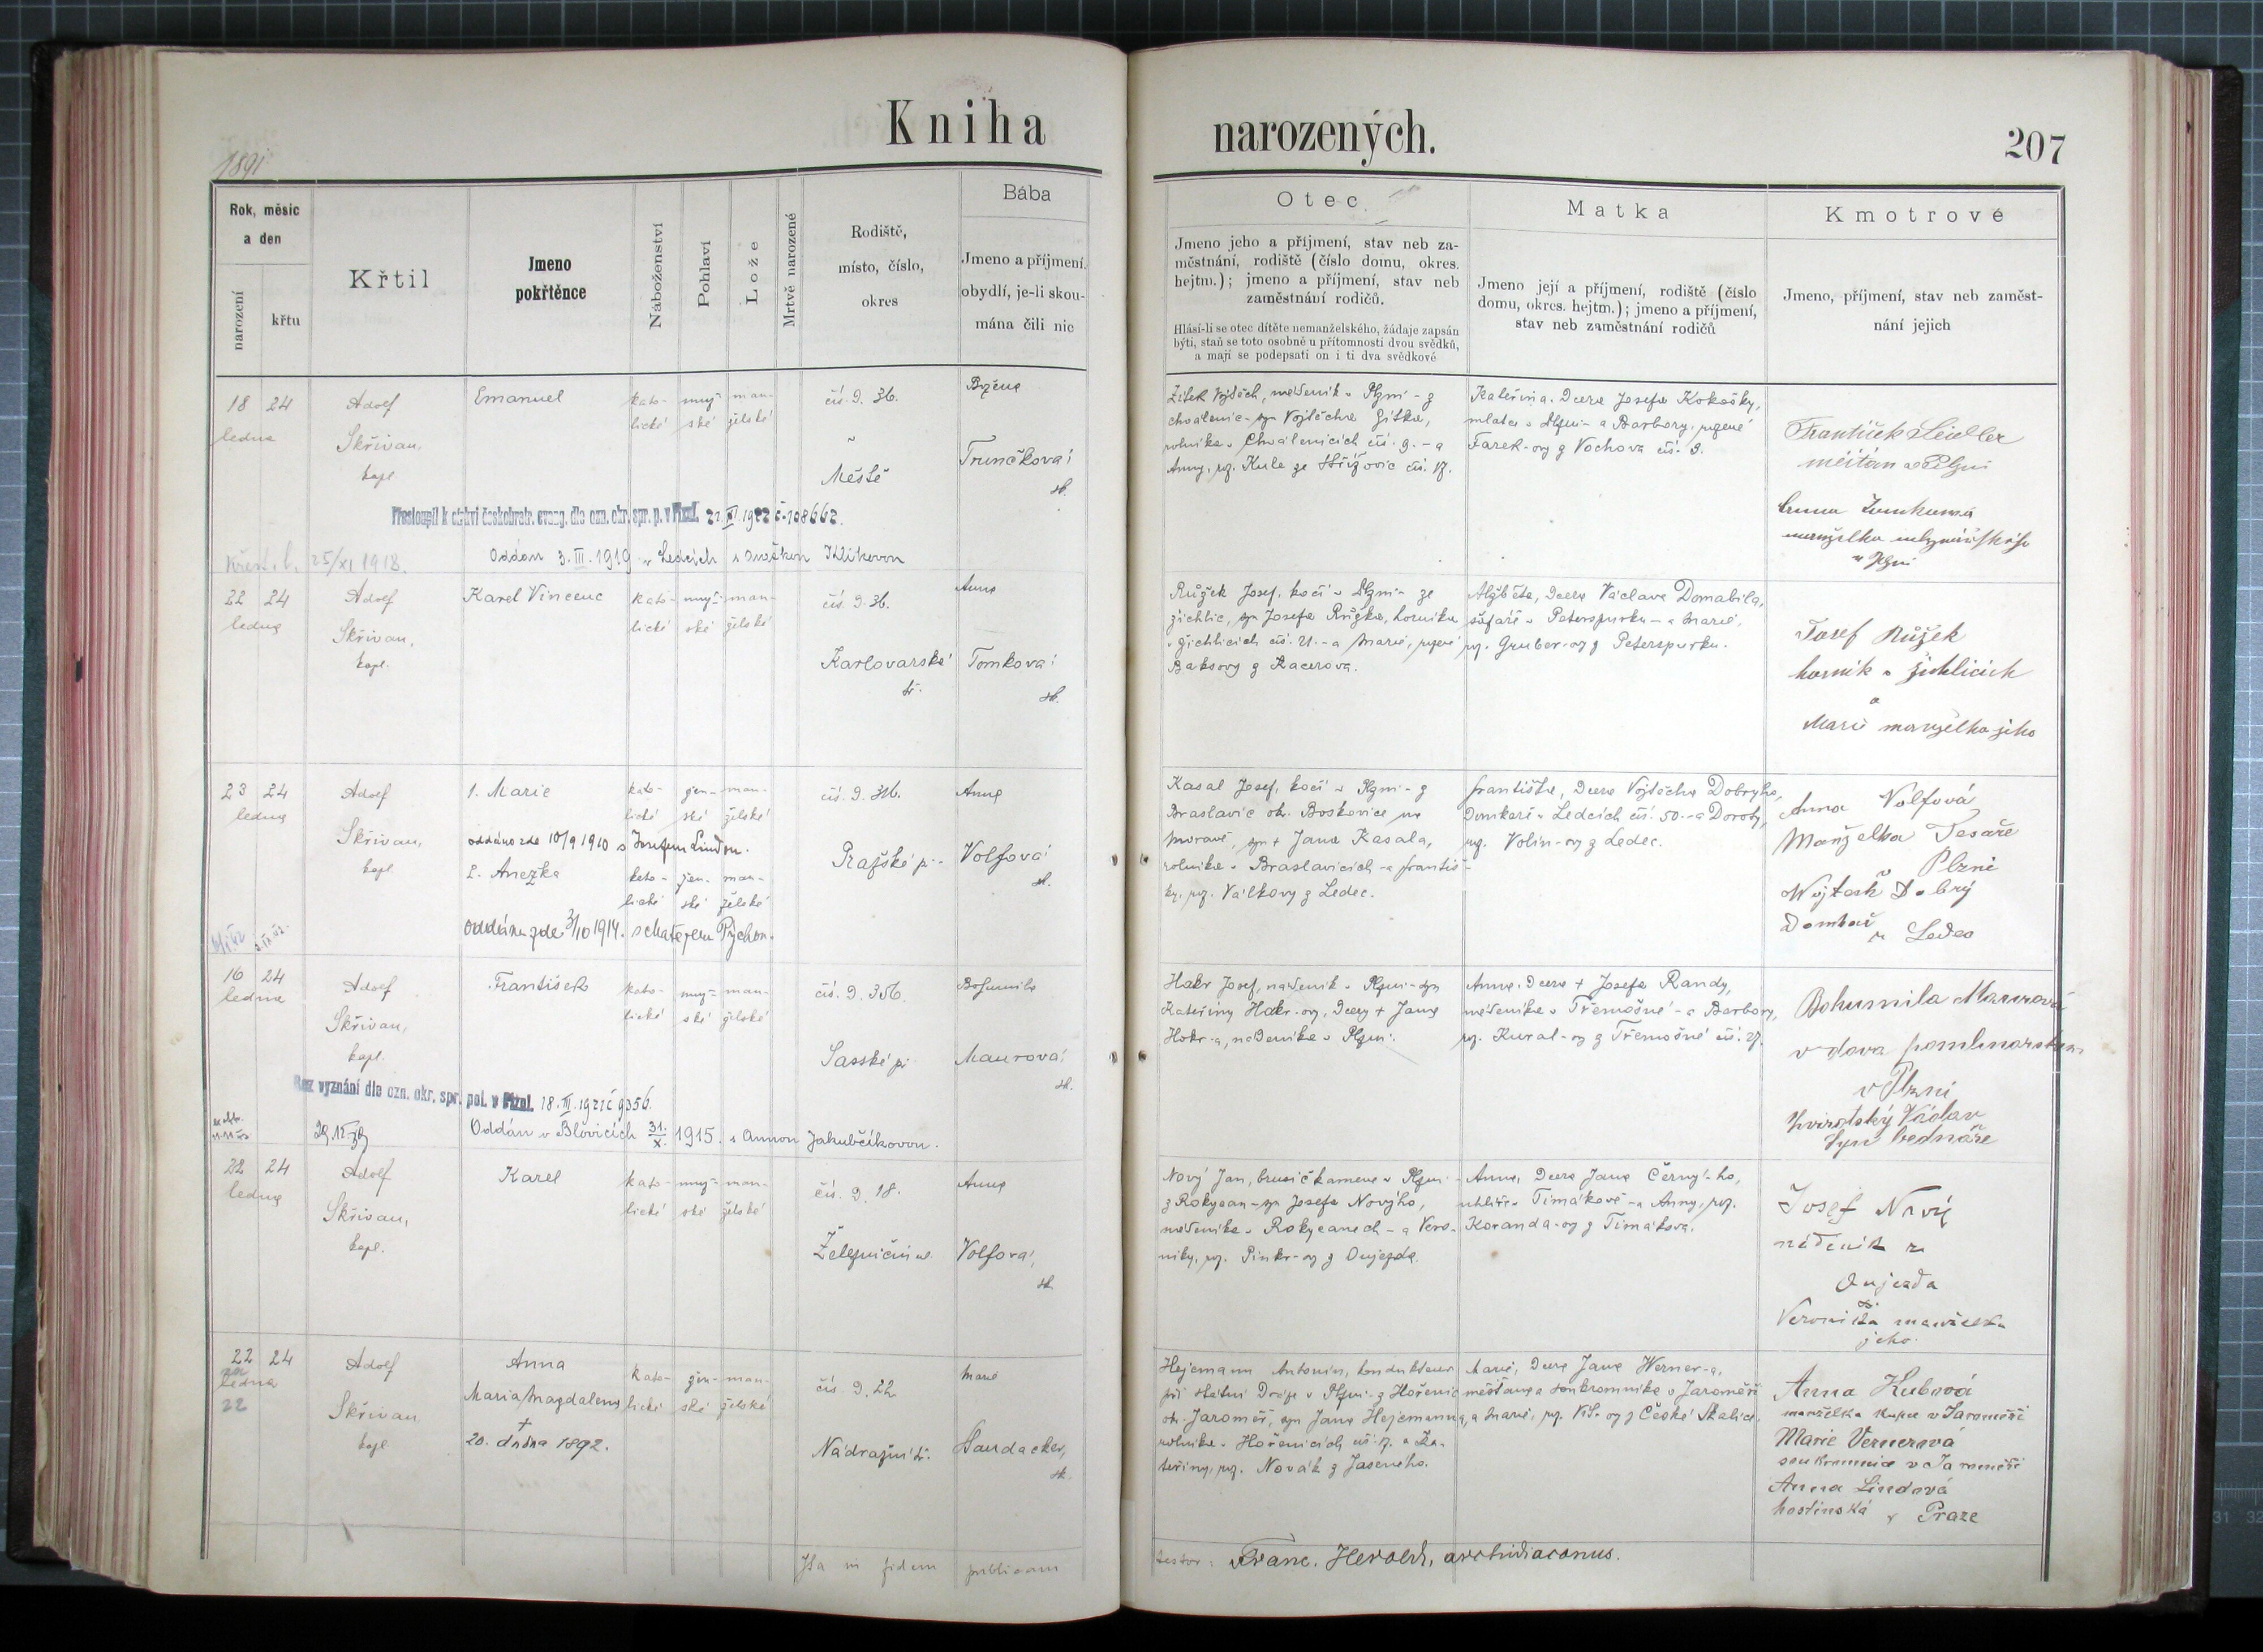 Kniha
narozených.
207
1891
Rok, měsíc
a den
narození
křtu
Křtil
Jmeno
pokřtěnce
Náboženství
Pohlaví
Lože
Mrtvě narozené
Rodiště,
místo, číslo,
okres
Bába
Jmeno a příjmení,
obydlí, je-li skou-
mána čili nic
Otec
Jmeno jeho a příjmení, stav neb za-
městnání, rodiště (číslo domu, okres.
hejtm.); jmeno a příjmení, stav neb
zaměstnání rodičů.
Hlásí-li se otec dítěte nemanželského, žádaje zapsán
býti, staň se toto osobně u přítomnosti dvou svědků,
a mají se podepsati on i ti dva svědkové
Matka
Jmeno její a příjmení, rodiště (číslo
domu, okres. hejtm.); jmeno a příjmení,
stav neb zaměstnání rodičů
Kmotrové
Jmeno, příjmení, stav neb zaměst-
nání jejich
18 24
ledna
Adolf
Skřivan,
kapl.
Emanuel
kato-
lické
muž-
ské
man-
želské
čís. d. 36.
Trunčková
Přestoupil k církvi českobratr. evang. dle ozn. okr. spr. p. v Plzni. 21. XI. 1922 č. 108662.
25/XI 1918.
Oddán 3. III. 1919 v Ledcích s Anežkou Klikovou
Žitek Vojtěch, nádeník v Plzni - z
Chválenic - syn Vojtěcha Žitka,
rolníka v Chválenicích čís. 9. - a
Kateřina, dcera Josefa Kokošky,
mlatce v Plzni - a Barbory, rozené
Farek-ovy z Vochova čís. 9.
František Seidler
měšťan v Plzni
22 24
ledna
Adolf
Skřivan,
kapl.
Karel Vincenc
kato-
lické
muž-
ské
man-
želské
čís. d. 36.
Karlovarská
tř.
Anna
Tomková
Růžek Josef, kočí v Plzni - ze
Žichlic, syn Josefa Růžka, horníka
v Žichlicích čís. 21. - a Marie, rozené
Baksovy z Kacerova.
Alžběta, dcera Václava Domabila,
šafáře v Peterspurku - a Marie,
roz. Gruber-ovy z Peterspurku.
Josef Růžek
horník v Žichlicích
a
Marie manželka jeho
23 24
ledna
Adolf
Skřivan,
kapl.
1. Marie
kato-
lické
žen-
ské
man-
želské
oddána zde 10/9 1910 s Josefem Lindou.
2. Anežka
kato-
lické
žen-
ské
man-
želské
oddána zde 3/10 1914. s Matějem Pýchou.
čís. d. 316.
Pražské p.
Anna
Volfová
Kasal Josef, kočí v Plzni - z
Braslavic okr. Boskovice na
Moravě, syn † Jana Kasala,
rolníka v Braslavicích - a Františ-
ky, roz. Válkovy z Ledec.
Františka, dcera Vojtěcha Dobrýho,
domkaře v Ledcích čís. 50. - a Doroty,
roz. Volín-ovy z Ledec.
Anna Volfová
Manželka Tesaře
v Plzni
Wojtěch Dobrý
Domkař
z Ledec
16 24
ledna
Adolf
Skřivan,
kapl.
František
kato-
lické
muž-
ské
man-
želské
čís. d. 356.
Saské p.
Bohumila
Maurová
Bez vyznání dle ozn. okr. spr. pol. v Plzni. 18. III. 1921 č 9356.
Oddán v Blovicích 31./X. 1915. s Annou Jakubčíkovou.
Hakr Josef, nádeník v Plzni - syn
Kateřiny Hakr-ovy, dcery † Jana
Hakr-a, nádeníka v Plzni.
Anna, dcera † Josefa Randy,
nádeníka v Třemošné - a Barbory,
roz. Kural-ovy z Třemošné čís. 27.
Bohumila Maurová
vdova
v Plzni
Václav
Syn bednáře
22 24
ledna
Adolf
Skřivan,
kapl.
Karel
kato-
lické
muž-
ské
man-
želské
čís. d. 18.
Železniční ul.
Anna
Volfová,
Nový Jan, brusič kamene v Plzni -
z Rokycan - syn Josefa Nového,
nádeníka v Rokycanech - a Vero-
niky, roz. Pinkr-ovy z Oujezda.
Anna, dcera Jana Černý-ho,
uhlíře v Timákově - a Anny, roz.
Koranda-ovy z Timákova.
Josef Nový
nádeník z
Oujezda
Veronika manželka
jeho.
22 24
ledna
22
Adolf
Skřivan
kapl.
Anna
Maria Magdalena
†
20. dubna 1892.
kato-
lické
žen-
ské
man-
želské
čís. d. 22.
Nádražní tř.
Marie
Hejcmann Antonín, kondukteur
při státní dráze v Plzni - z Hořenic
okr. Jaroměř, syn Jana Hejcmanna,
rolníka v Hořenicích čís. 7. a Ka-
teřiny, roz. Novák z Jaseného.
Marie, dcera Jana Werner-a,
měšťana a soukromníka v Jaroměři
Anna Kubová
manželka kupce v Jaroměři
Marie Vernerová
soukromnice v Jaroměři
Anna Lindová
hostinská v Praze
Ita in fidem publicam
testor: Franc. Herold, archidiaconus.